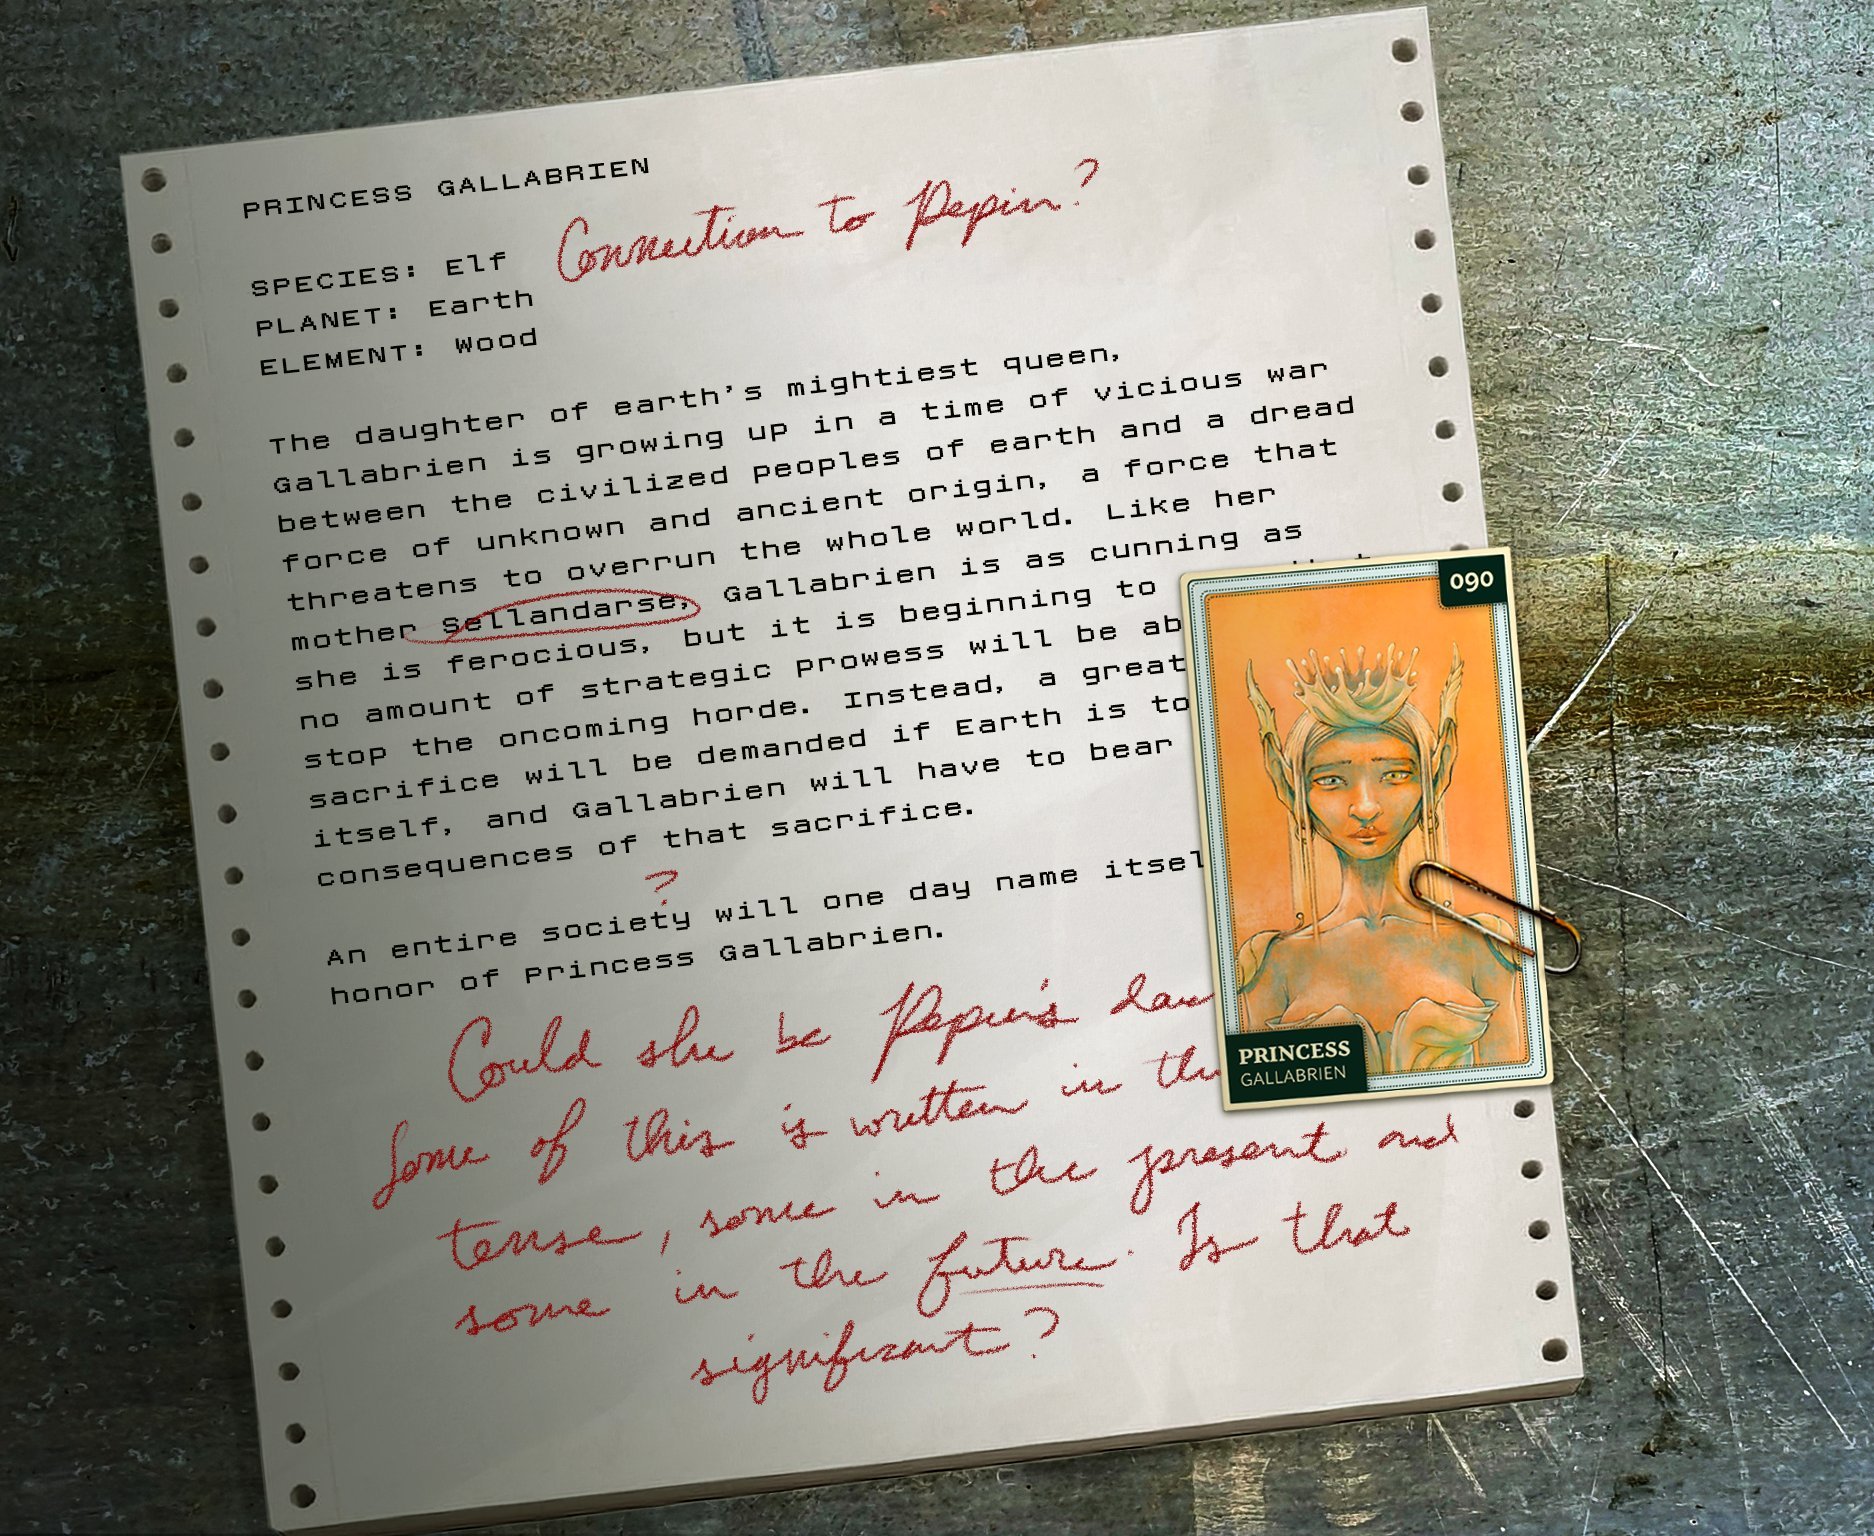 PRINCESS GALLABRIEN
Connection to Pepin?
SPECIES: Elf
PLANET: Earth
ELEMENT: Wood
The daughter of earth's mightiest queen,
Gallabrien is growing up in a time of vicious war
between the civilized peoples of earth and a dread
force of unknown and ancient origin, a force that
threatens to overrun the whole world. Like her
mother Sellandarse, Gallabrien is as cunning as
she is ferocious, but it is beginning to
no amount of strategic prowess will be
stop the oncoming horde. Instead, a great
sacrifice will be demanded if Earth is to
itself, and Gallabrien will have to bear
consequences of that sacrifice.
?
An entire society will one day name
honor of Princess Gallabrien.
Could she be Pepin's
Some of this is written in
tense, some in the present and
some in the future. Is that
significant?
090
PRINCESS
GALLABRIEN